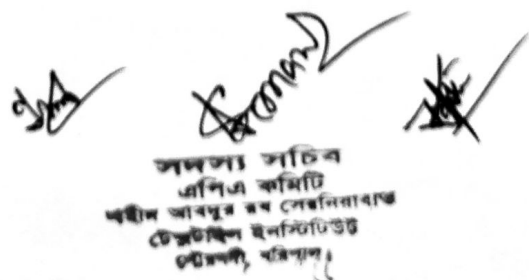 সদস্য সচিব
এপিএ কমিটি
শহীদ আবদুর রব সেরনিয়াবাত
টেক্সটাইল ইনস্টিটিউট
গৌরনদী, বরিশাল।